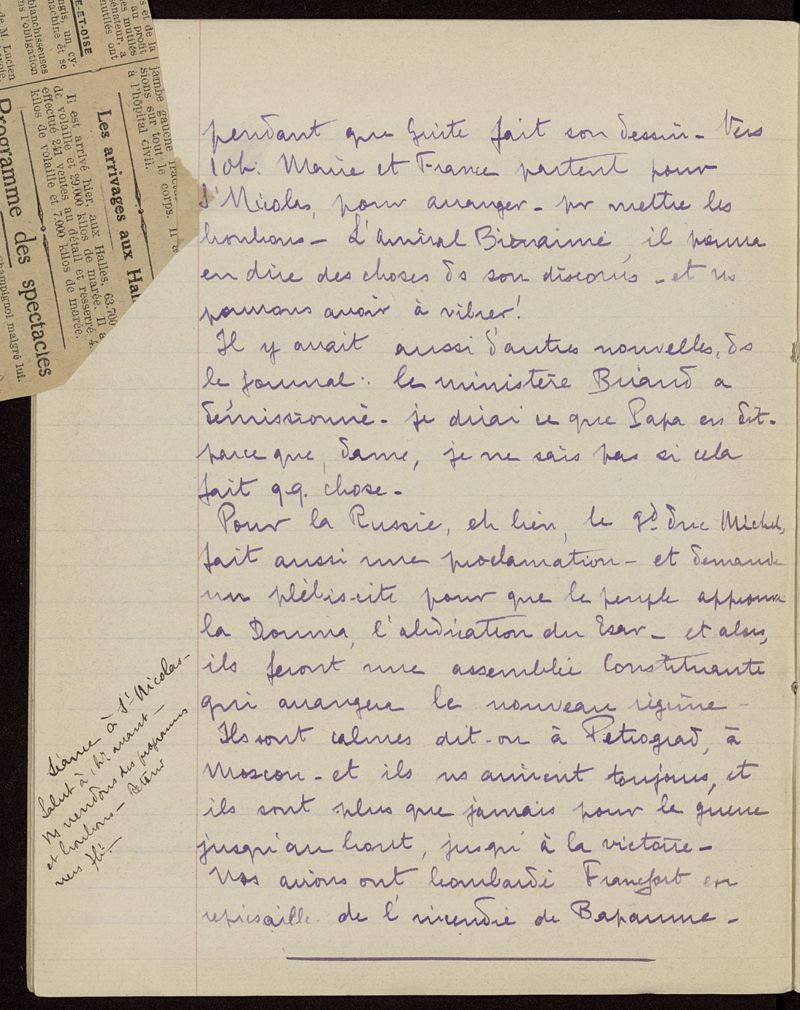 pendant que Guite fait son dessin - Vers
10h. Marie et France partent pour
St Nicolas, pour arranger - pr mettre les
bonbons - L'amiral Bienaimé, il pourra
en dire des choses ds son discours - et ns
pourrons avoir à vibrer!
Il y avait aussi d'autres nouvelles, ds
le journal : le ministère Briand a
démissionné - je dirai ce que Papa en dit -
parce que, dame, je ne sais pas si cela
fait qq. chose -
Pour la Russie, eh bien, le gd duc Michel,
fait aussi une proclamation - et demande
un plébiscite pour que le peuple approuve
la Douma, l'abdication du Tsar - et alors,
ils feront une assemblée Constituante
qui arrangera le nouveau régime -
Ils sont calmes dit-on à Petrograd, à
Moscou - et ils ns aiment toujours, et
ils sont plus que jamais pour la guerre
jusqu'au bout, jusqu'à la victoire -
Nos avions ont bombardé Francfort en
représaille de l'incendie de Bapaume -
Séance à St Nicolas -
Salut à 1h. avant -
ns vendons des programmes
et bonbons - Retour
vers
s et de la
au profit
es mutilés
énateur, a
mutilés ont
E-ET-OISE
ngis, un cy-
machine et se
blanchisseuses
ns l'obligation
de M. Lucien
jambe gauche
sions sur tout le corps. Il a
à l'hôpital civil.
Les arrivages aux Hal
Il est arrivé hier, aux Halles, 63.700
de volaille et 29.000 kilos de marée. Il a
effectué 241 ventes au détail et resserré 4
kilos de volaille et 7.000 kilos de marée.
Programme des spectacles
Champignol malgré lui.